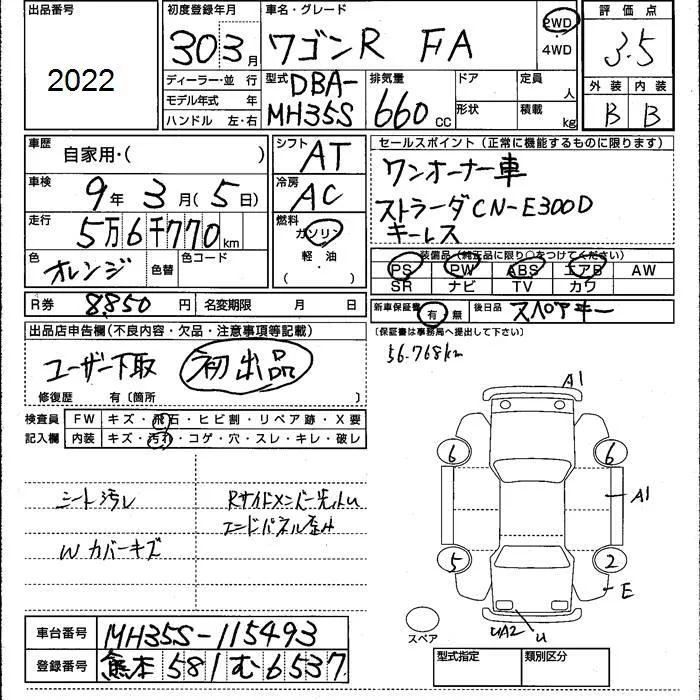 出品番号
2022
初度登録年月
30 3月
車名・グレード
ワゴンR FA
2WD
・
4WD
評価点
3.5
外装 内装
B B
ディーラー・並行
モデル年式 年
ハンドル 左・右
型式 DBA-
MH35S
排気量
660 CC
ドア
形状
定員
人
積載
kg
車歴
自家用・( )
車検
9年 3月(5日)
走行
5万6千770km
色
オレンジ
色替
色コード
シフト
AT
冷房
AC
燃料
ガソリン
軽油
・
( )
セールスポイント(正常に機能するものに限ります)
ワンオーナー車
ストラーダCN-E300D
キーレス
装備品(純正品に限り○をつけてください)
PS PW ABS エアB AW
SR ナビ TV カワ
R券 8850 円
名変期限 月 日
新車保証書 有・無
後日品 スペアキー
(保証書は事務局へ提出して下さい)
56.768km
出品店申告欄(不良内容・欠品・注意事項等記載)
ユーザー下取 初出品
修復歴 有〔箇所 〕
検査員
記入欄
FW キズ・飛石・ヒビ割・リペア跡・X要
内装 キズ・汚れ・コゲ・穴・スレ・キレ・破レ
シート汚レ
W カバーキズ
Rサイドメンバー先凹ム
エンドパネル歪ム
A1
6 6
A1
5 2
E
UA2 U
スペア
車台番号 MH35S-115493
登録番号 熊本 581 む 6537
型式指定 類別区分